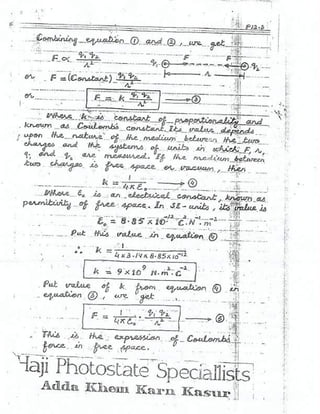 P12-3
Combining equation ① and ②, we get
F ∝ q₁ q₂ / r²
F q₁ q₂ F
r
or F = (Constant) q₁ q₂ / r²
or F = k q₁ q₂ / r² → ③
Where k is constant of proportionality and
known as Coulomb's constant. Its value depends
upon the nature of the medium between the two
charges and the systems of units in which F, r,
q₁ and q₂ are measured. If the medium between
two charges is free space or vacuum, then
k = 1 / 4πε₀ → ④
Where ε₀ is an electrical constant, known as
permittivity of free space. In SI-units, its value is
ε₀ = 8.85 × 10⁻¹² C².N⁻¹.m⁻²
Put this value in equation ④
∴ k = 1 / 4×3.14×8.85×10⁻¹²
k = 9×10⁹ N.m².C⁻²
Put value of k from equation ④ in
equation ③, we get
F = 1 / 4πε₀ · q₁ q₂ / r² → ⑤
This is the expression of Coulomb's
force in free space.
Haji Photostate Speciallists
Adda Khem Karn Kasur